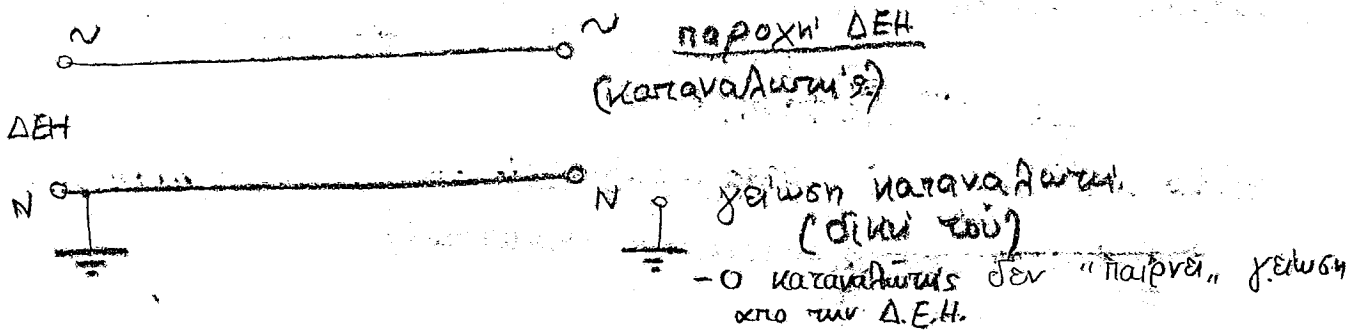 ~ ~ παροχή ΔΕΗ
(καταναλωτής)
ΔΕΗ
N N γείωση καταναλωτή.
(δική του)
- Ο καταναλωτής δέν "παίρνει" γείωση
απο την Δ.Ε.Η.